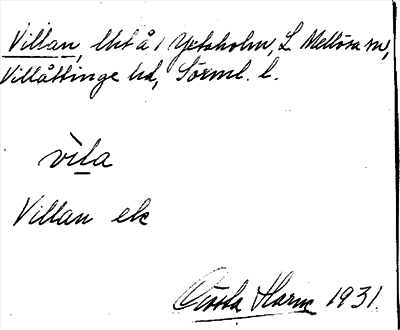 Villan, lht å / Yxtaholm, L. Mellösa sn,
Villåttinge hd, Sörml. l.
vìla
Villan ek
Gösta Harm 1931.